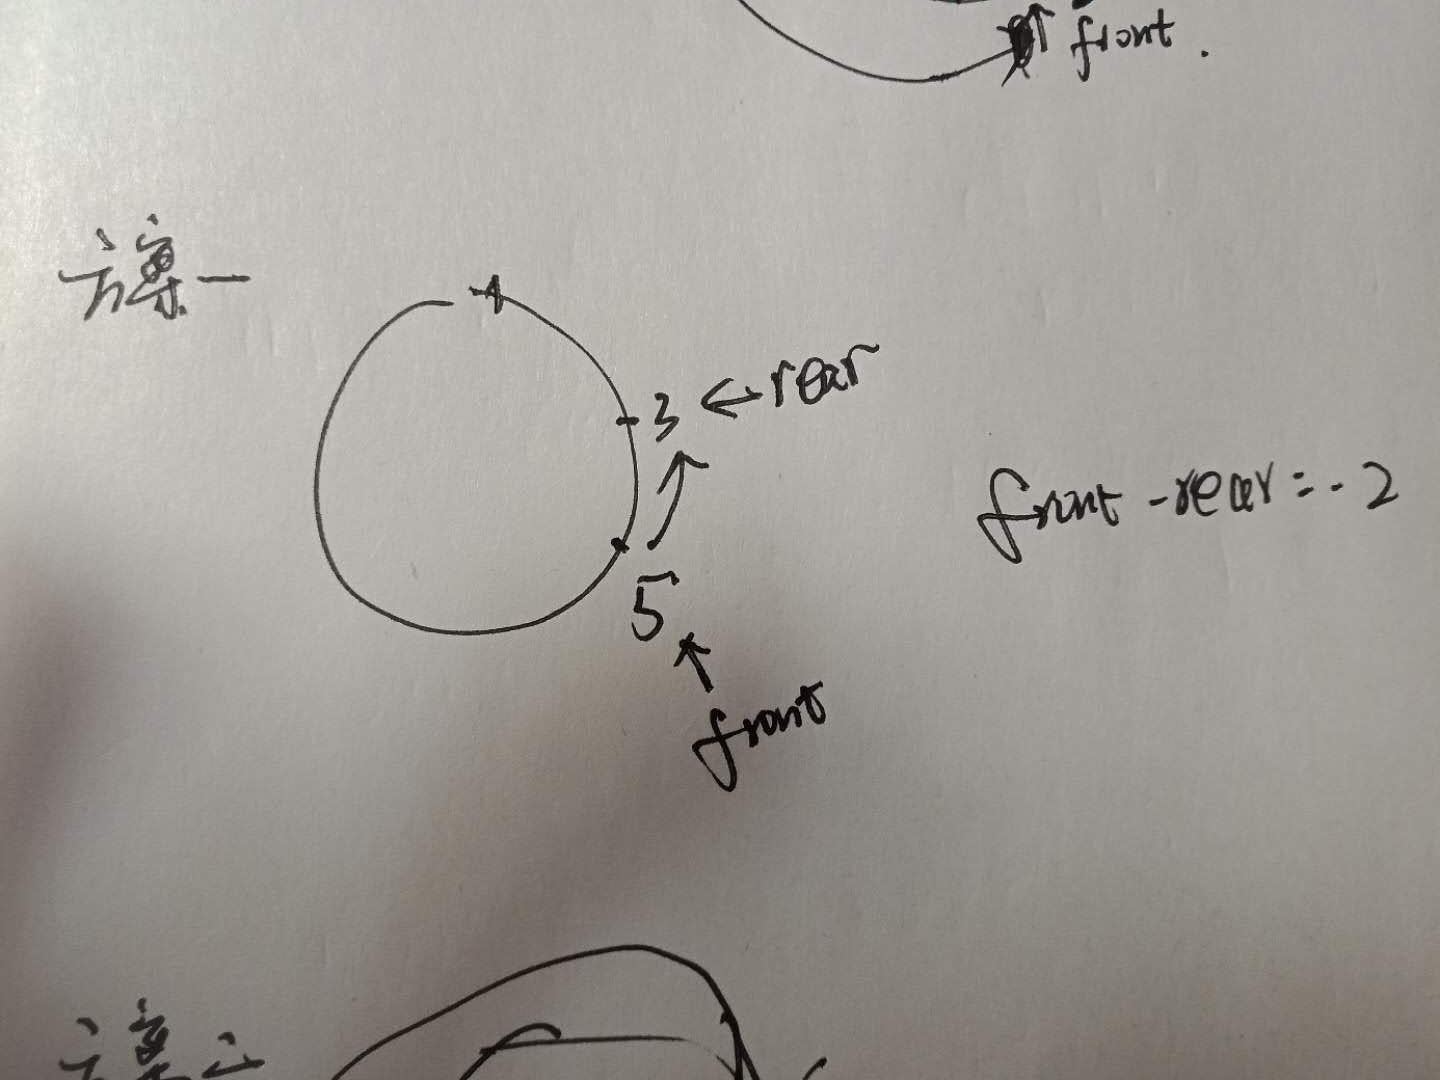 front.
方案一
3 ← rear
front - rear = - 2
5
front
方案二